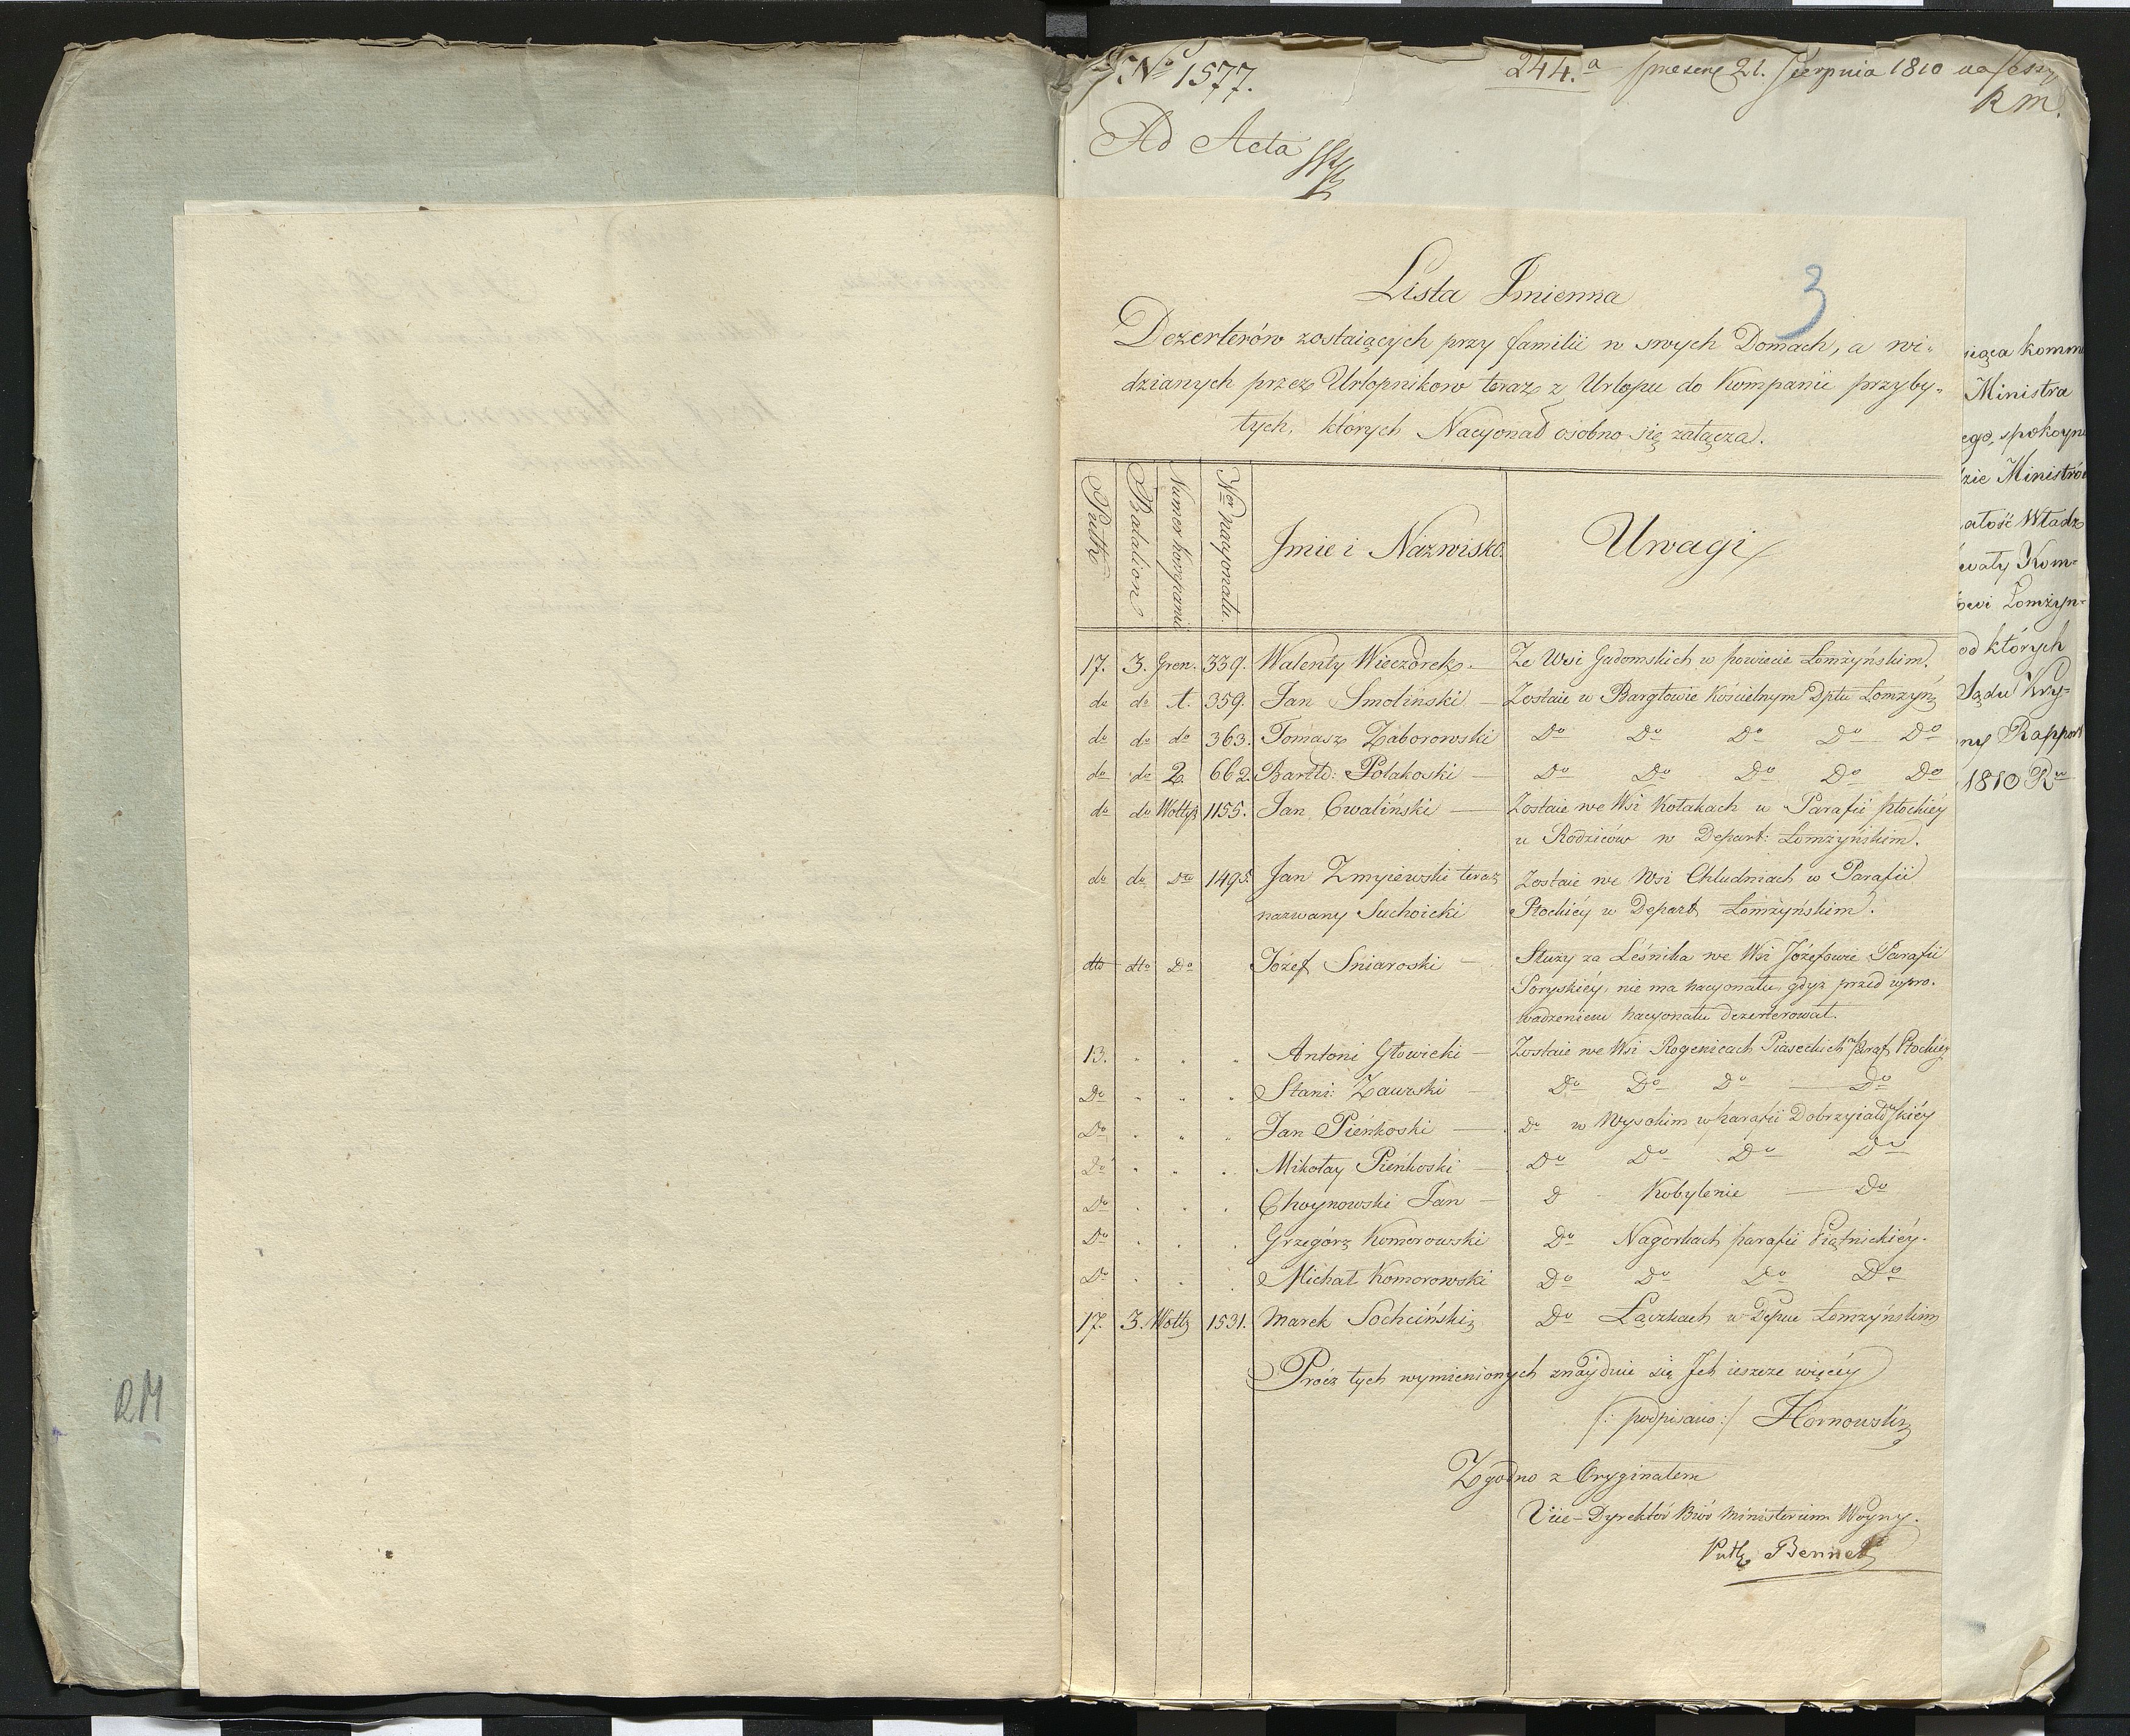 No 1577.
244.a 21. Sierpnia 1810 na
R M.
Ad Acta
3
Lista Jmienna
Dezerterów zostaiących przy familii w swych Domach, a wi-
dzianych przez Urlopnikow teraz z Urlopu do Kompanii przyby-
tych, których Nacyonał osobno się załącza.
Pułk Batalion Numer kompanii Nor nacyonału. Jmie i Nazwisko. Uwagi
17. 3. Gren. 339. Walenty Wieczorek. Ze Wsi Gadomskich w powiecie Łomżyńskim.
do do 1. 359. Jan Smoliński — Zostaie w Bargłowie Kościelnym Dptu Łomżyń
do do do 363. Tomasz Zaborowski Do Do Do Do Do
do do 2. 662. Bartło: Polakoski — Do Do Do Do Do
do do Woltyż 1155. Jan Cwaliński — Zostaie we Wsi Kołakach w Parafii płockiéy
u Rodziców w Depart: Łomżyńskim.
do do Do 1495. Jan Zmyiewski teraz Zostaie we Wsi Chludniach w Parafii
nazwany Suchcicki Płockiéy w Depart Łomżyńskim.
dto dto Do Józef Sniaroski — Służy za Leśnika we Wsi Józefowie Parafii
Poryskiéy, nie ma nacyonału, gdyż przed wpro-
wadzeniem nacyonału dezerterował.
13. Antoni Głowicki — Zostaie we Wsi Rogenicach Piaseckich w paraf. Płockiéy
Do Stani: Zawski — Do Do Do — Do
Do Jan Pieńkoski — Do w Wysokim w parafii Dobrzyiałowskiéy
Do Mikołay Pieńkoski — Do Do Do Do
Do Choynowski Jan — D Kobylenie — Do
Do Grzegórz Komorowski Do Nagorkach parafii Piątnickiéy.
Do Michał Komorowski Do Do Do Do
17. 3. Woltż 1531. Marek Sochciński Do Łączkach w Depcie Łomżyńskim
Prócz tych wymienionych znayduie się Jch ieszcze więcéy
/: podpisano :/ Hornowski
Zgodno z Oryginałem
Vice-Dyrektor Biór Ministerium Woyny.
Pułk Bennet
komm
Ministra
ego, spokoyn
zie Ministrów
ałość Władz
wały Kom-
owi Łomżyn-
od których
Sądu Kry-
ny Rapport
1810 Ru
RM